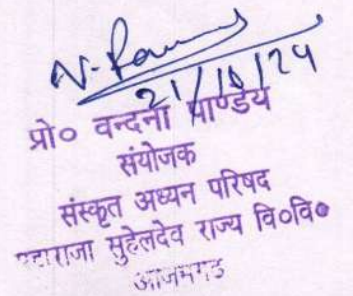 21/10/24
प्रो० वन्दना पाण्डेय
संयोजक
संस्कृत अध्यन परिषद
महाराजा सुहेलदेव राज्य वि०वि०
आजमगढ